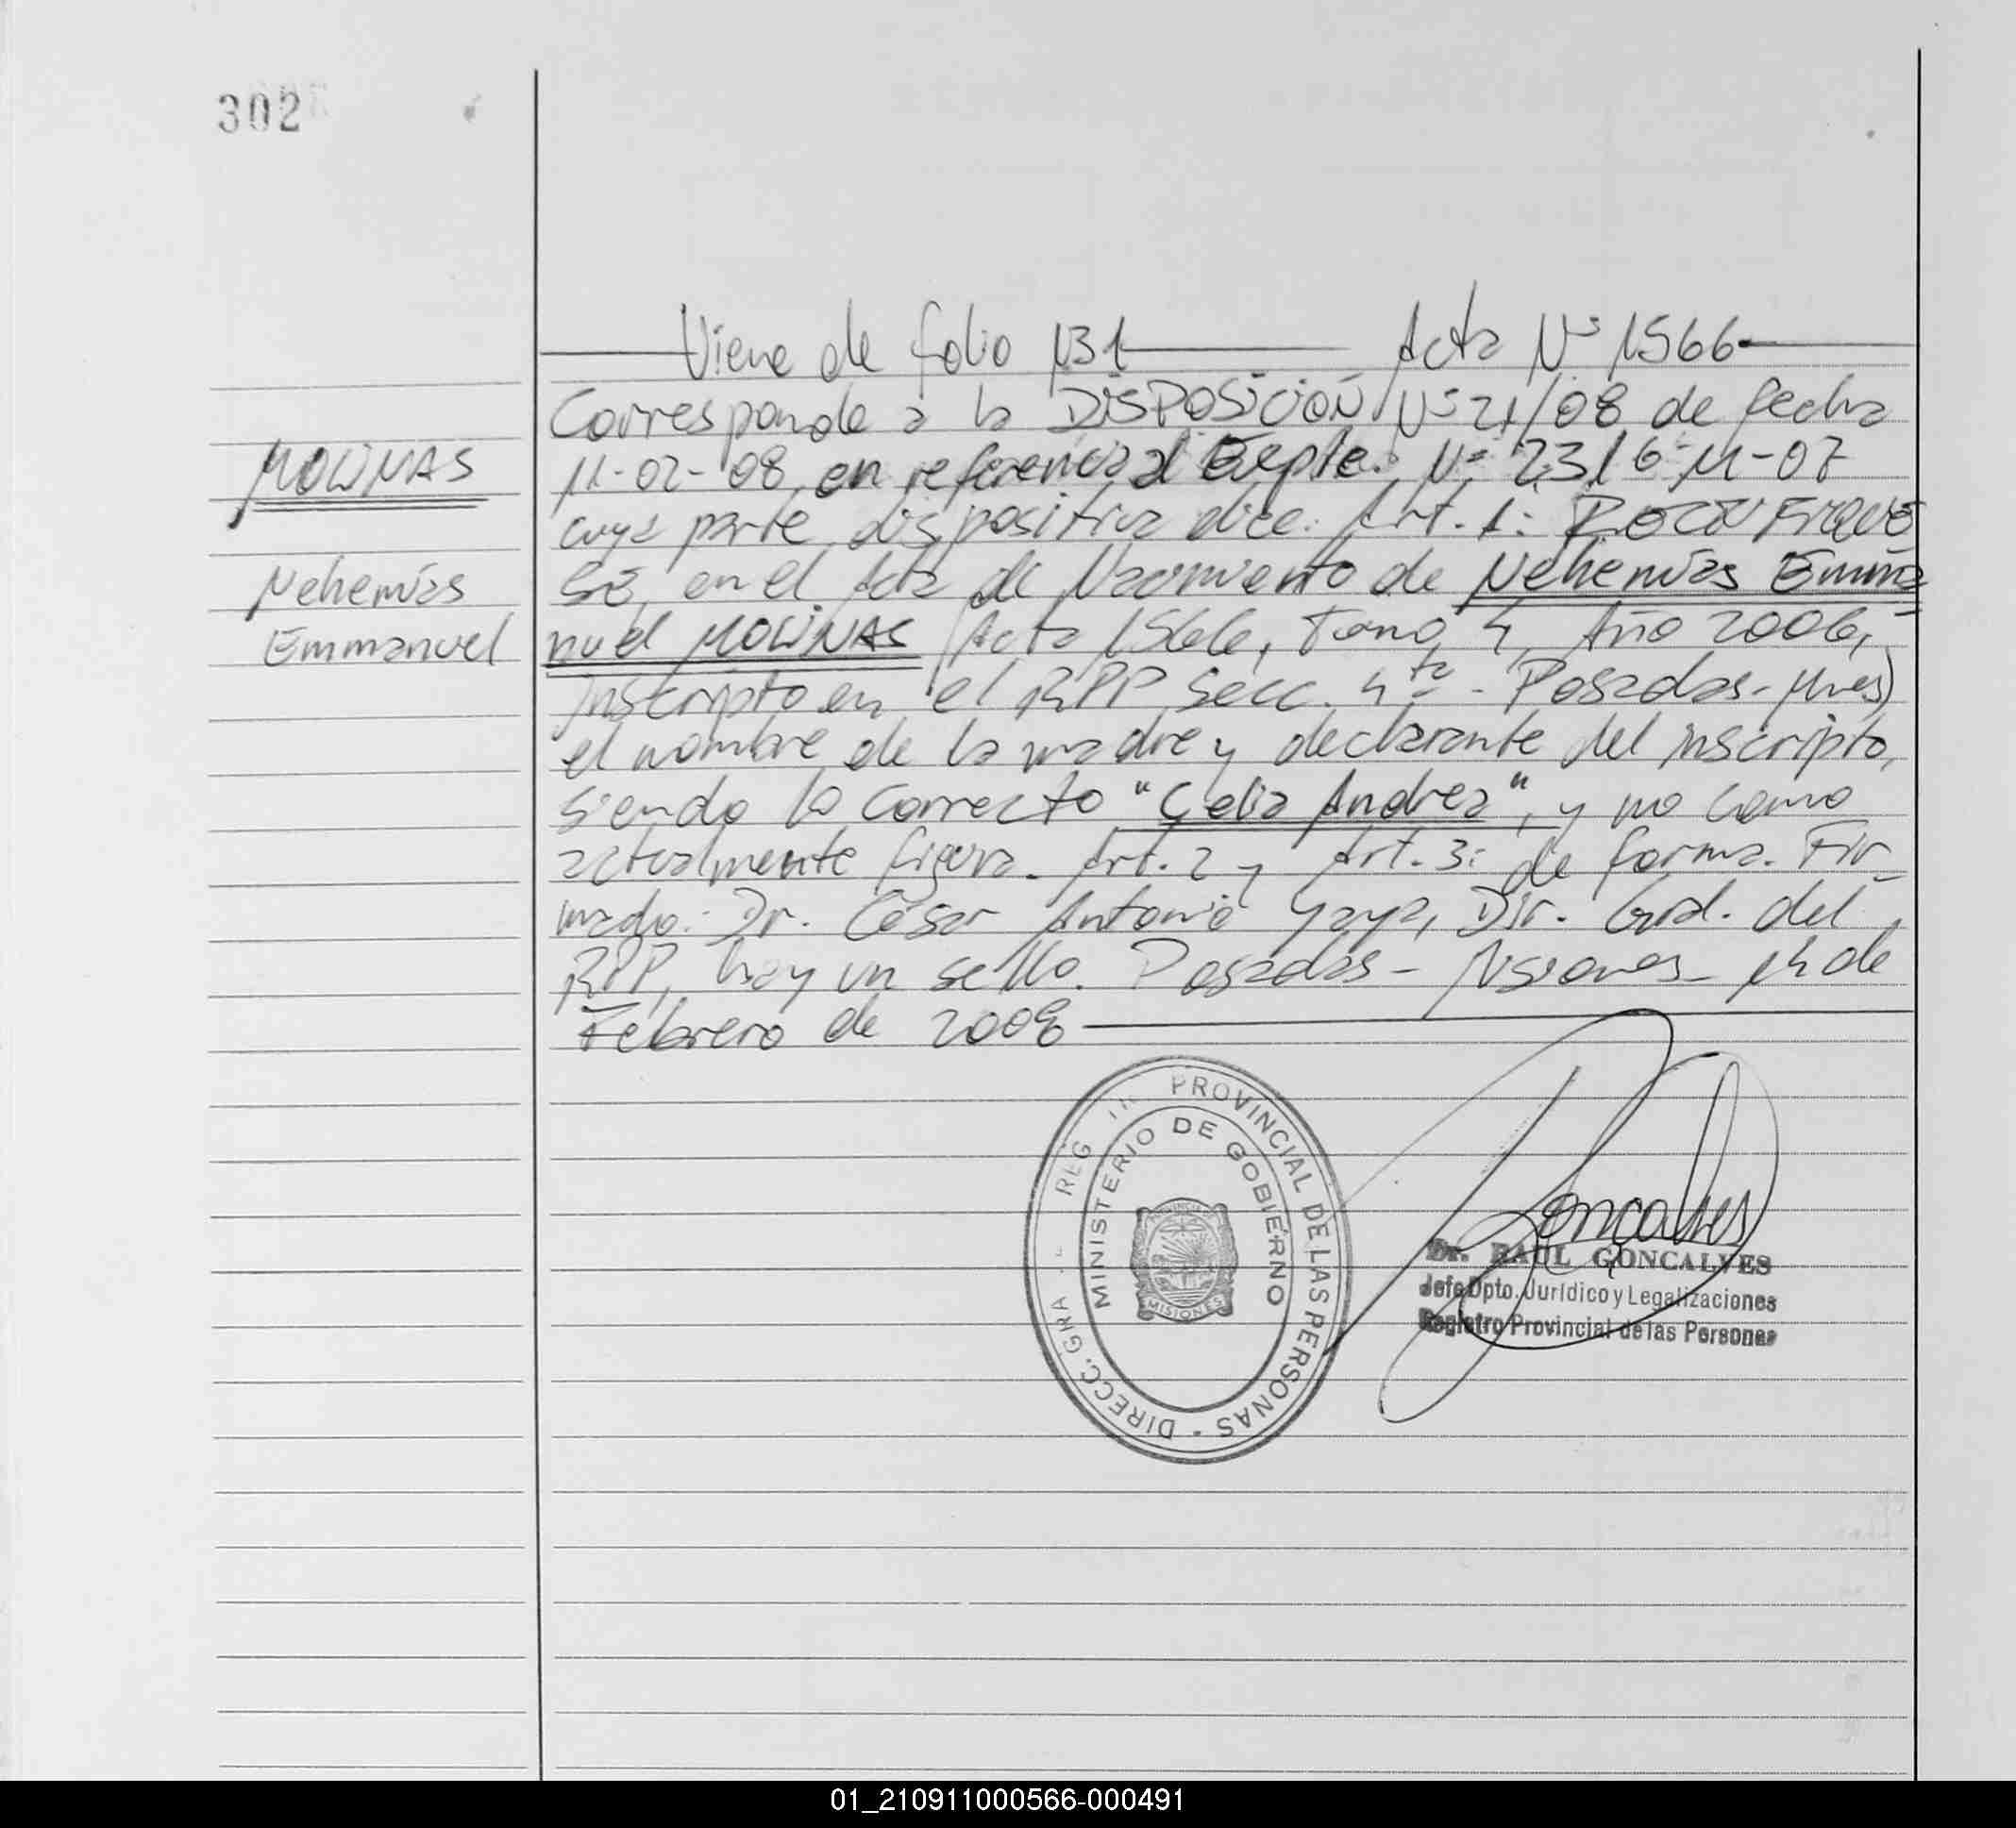 302
Viene de folio 131 Acta Nº 1566
Corresponde a la DISPOSICIÓN Nº 21/08 de fecha
MOLINAS
11-02-08, en referencia al Expte. Nº 2316-M-07
cuya parte dispositiva dice: Art. 1: RECTIFIQUE
Nehemías
SE, en el Acta de Nacimiento de Nehemías Emma
Emmanuel
nuel MOLINAS (Acta 1566, Tomo 4, Año 2006,
inscripto en el RPP Secc. 4ta - Posadas - Mnes)
el nombre de la madre y declarante del inscripto,
siendo lo correcto "Celia Andrea", y no como
actualmente figura. Art. 2 y Art. 3: de forma. Fir-
mado: Dr. César Antonio Yaya, Dir. Gral. del
RPP, hay un sello. Posadas - Misiones - 14 de
Febrero de 2008
DIRECC. GRAL. REG PROVINCIAL DE LAS PERSONAS -
MINISTERIO DE GOBIERNO
MISIONES
Goncalves
Dr. RAUL GONCALVES
Jefe Dpto. Jurídico y Legalizaciones
Registro Provincial de las Personas
01_210911000566-000491